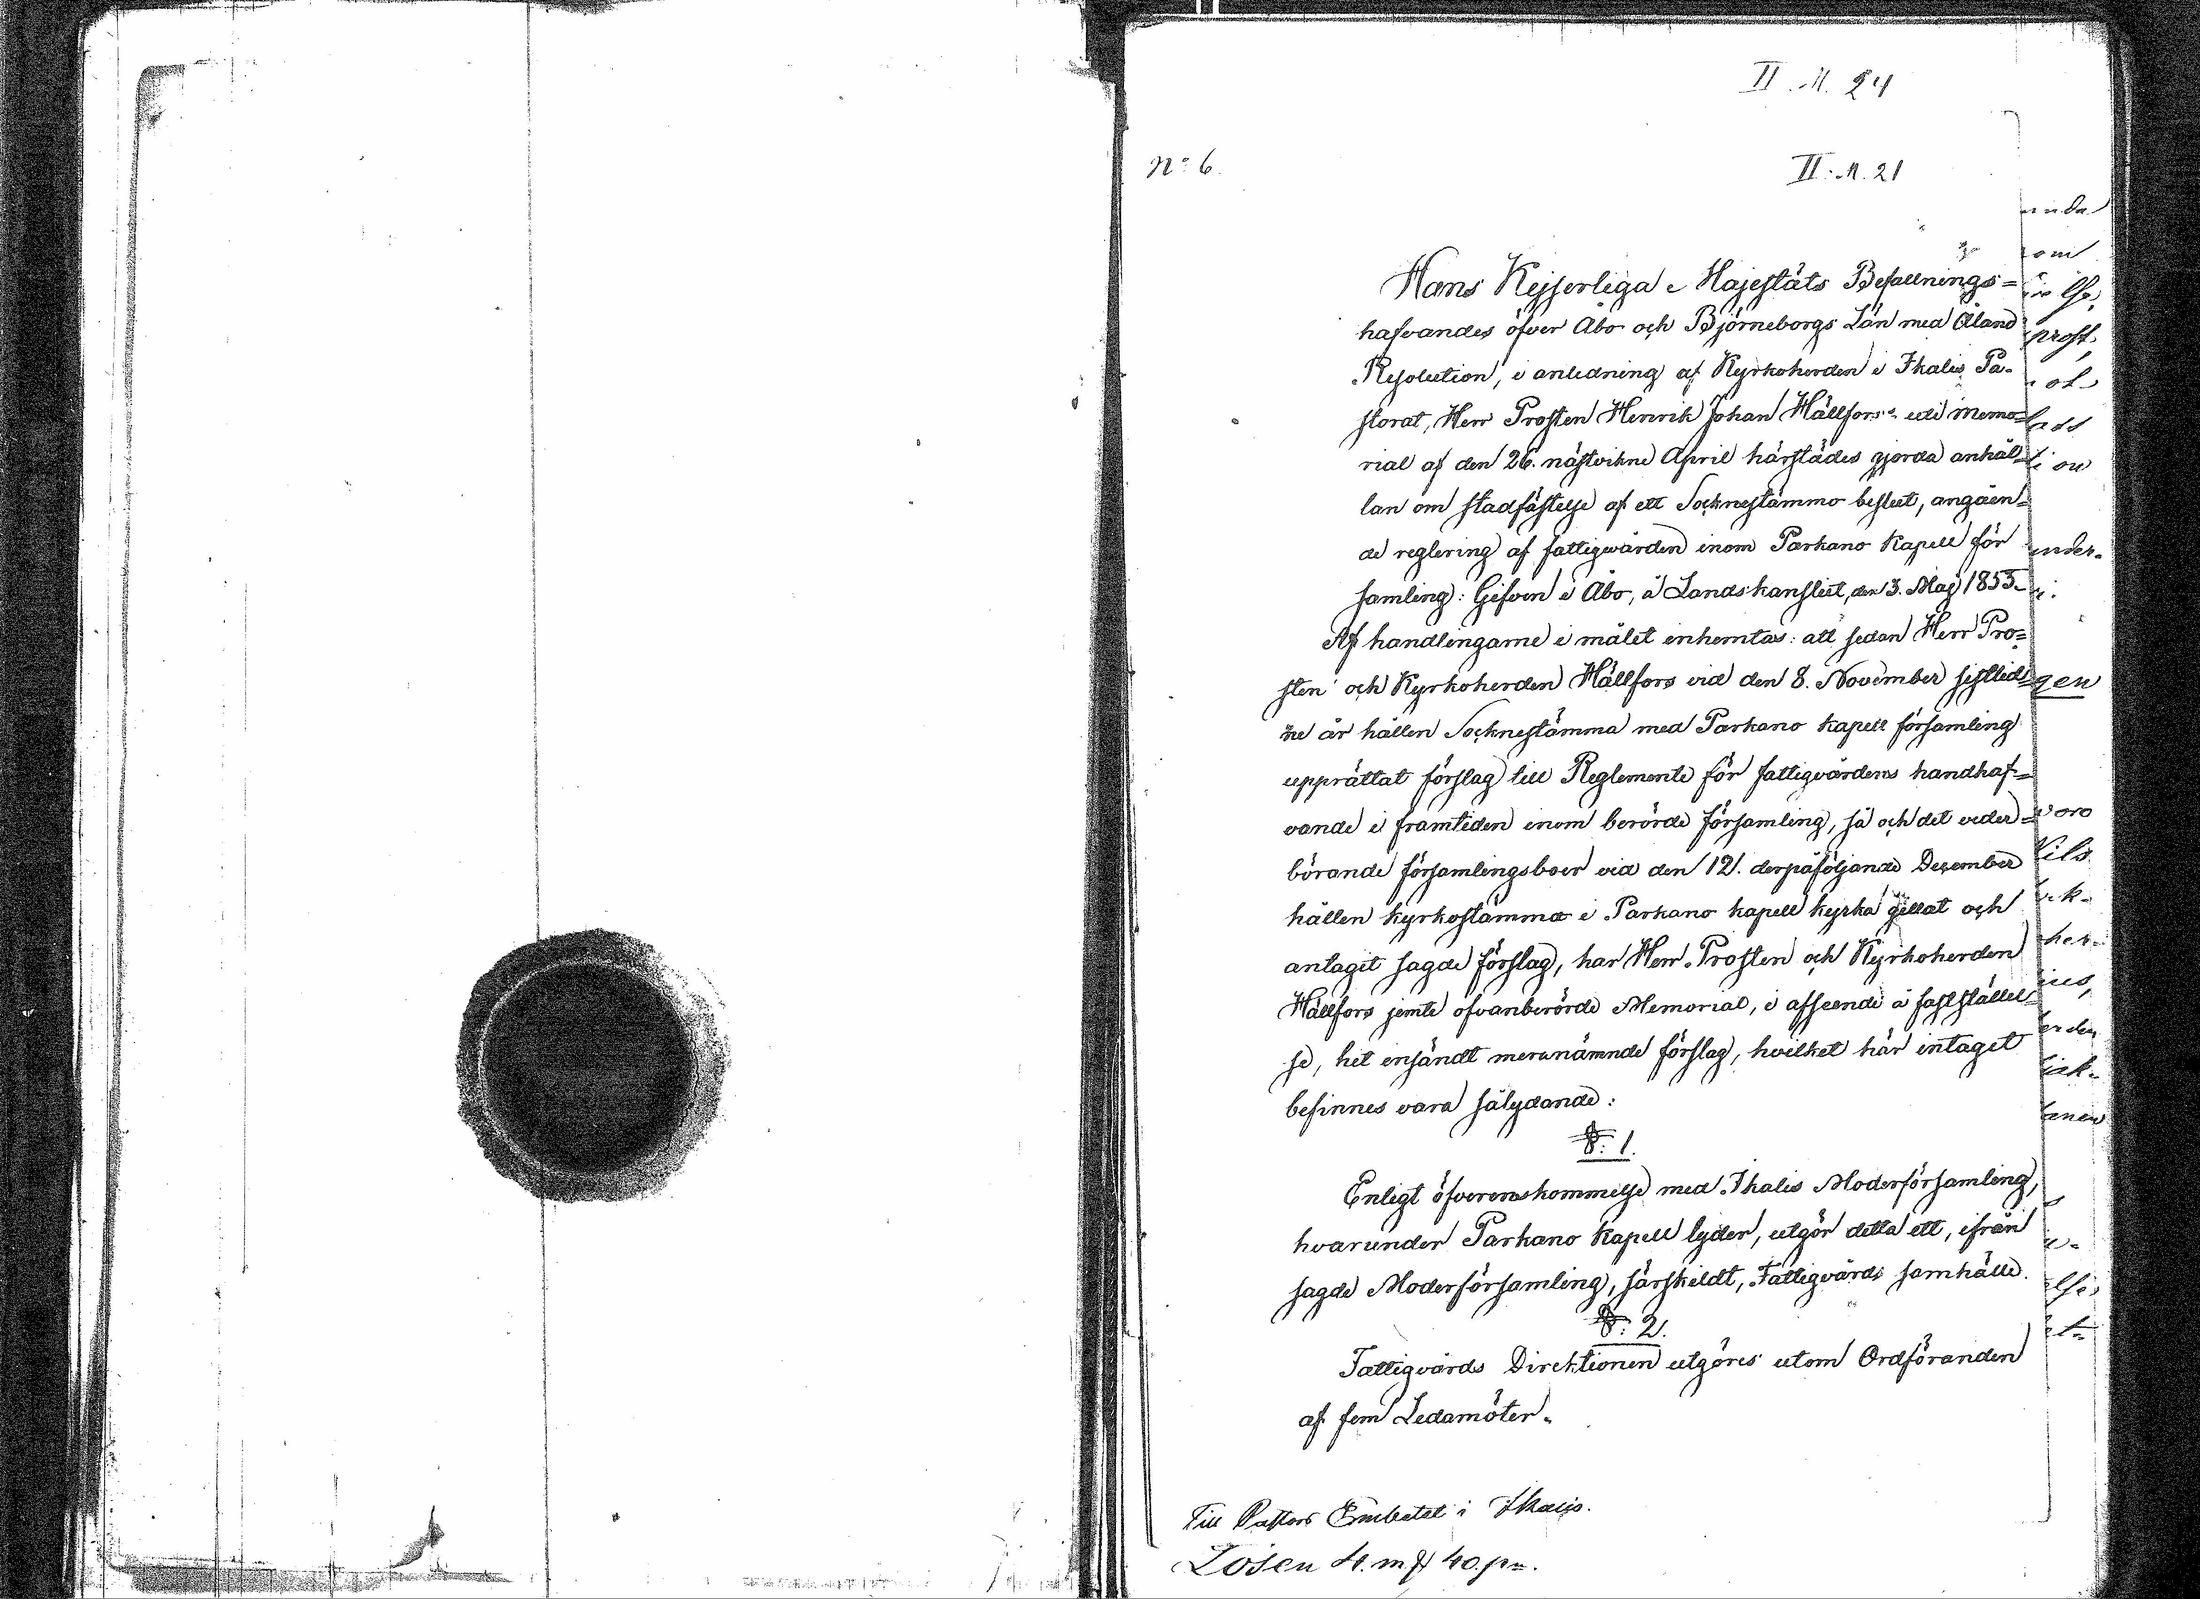 II. M. 24
No 6.
II. M. 21
Hans Kejserliga Majestäts Befallnings=
hafvandes öfver Åbo och Björneborgs Län med Åland
Resolution, i anledning af Kyrkoherden i Ikalis Pa-
storat, Herr Prosten Henrik Johan Hällfors uti Memo=
rial af den 26. nästvikne April härstädes gjorda anhål=
lan om stadfästelse af ett Socknestämmo beslut, angåen=
de reglering af fattigvården inom Parkano Kapell för
samling: Gifven i Åbo, å Landskansliet, den 3. Maj 1853.
Af handlingarne i målet inhemtas: att sedan Herr Pro=
sten och Kyrkoherden Hällfors vid den 8. November sistlid=
ne år hållen Socknestämma med Parkano kapell församling
upprättat förslag till Reglemente för fattigvårdens handhaf=
vande i framtiden inom berörde församling, så och det veder=
börande församlingsboer vid den 12. derpåföljande December
hållen kyrkostämma i Parkano kapell kyrka gillat och
antagit sagde förslag, har Herr Prosten och Kyrkoherden
Hällfors jemte ofvanberörde Memorial, i afseende å fastställel=
se, hit insändt meranämnde förslag, hvilket här intaget
befinnes vara sålydande:
§: 1.
Enligt öfverenskommelse med Ikalis Moderförsamling,
hvarunder Parkano Kapell lyder, utgör detta ett, ifrån
sagde Moderförsamling, särskildt, Fattigvårds samhälle.
§: 2.
Fattigvårds Direktionen utgöres utom Ordföranden
af fem Ledamöter.
Till Pastors Embetet i Ikalis.
Lösen 4. m 40. pn.